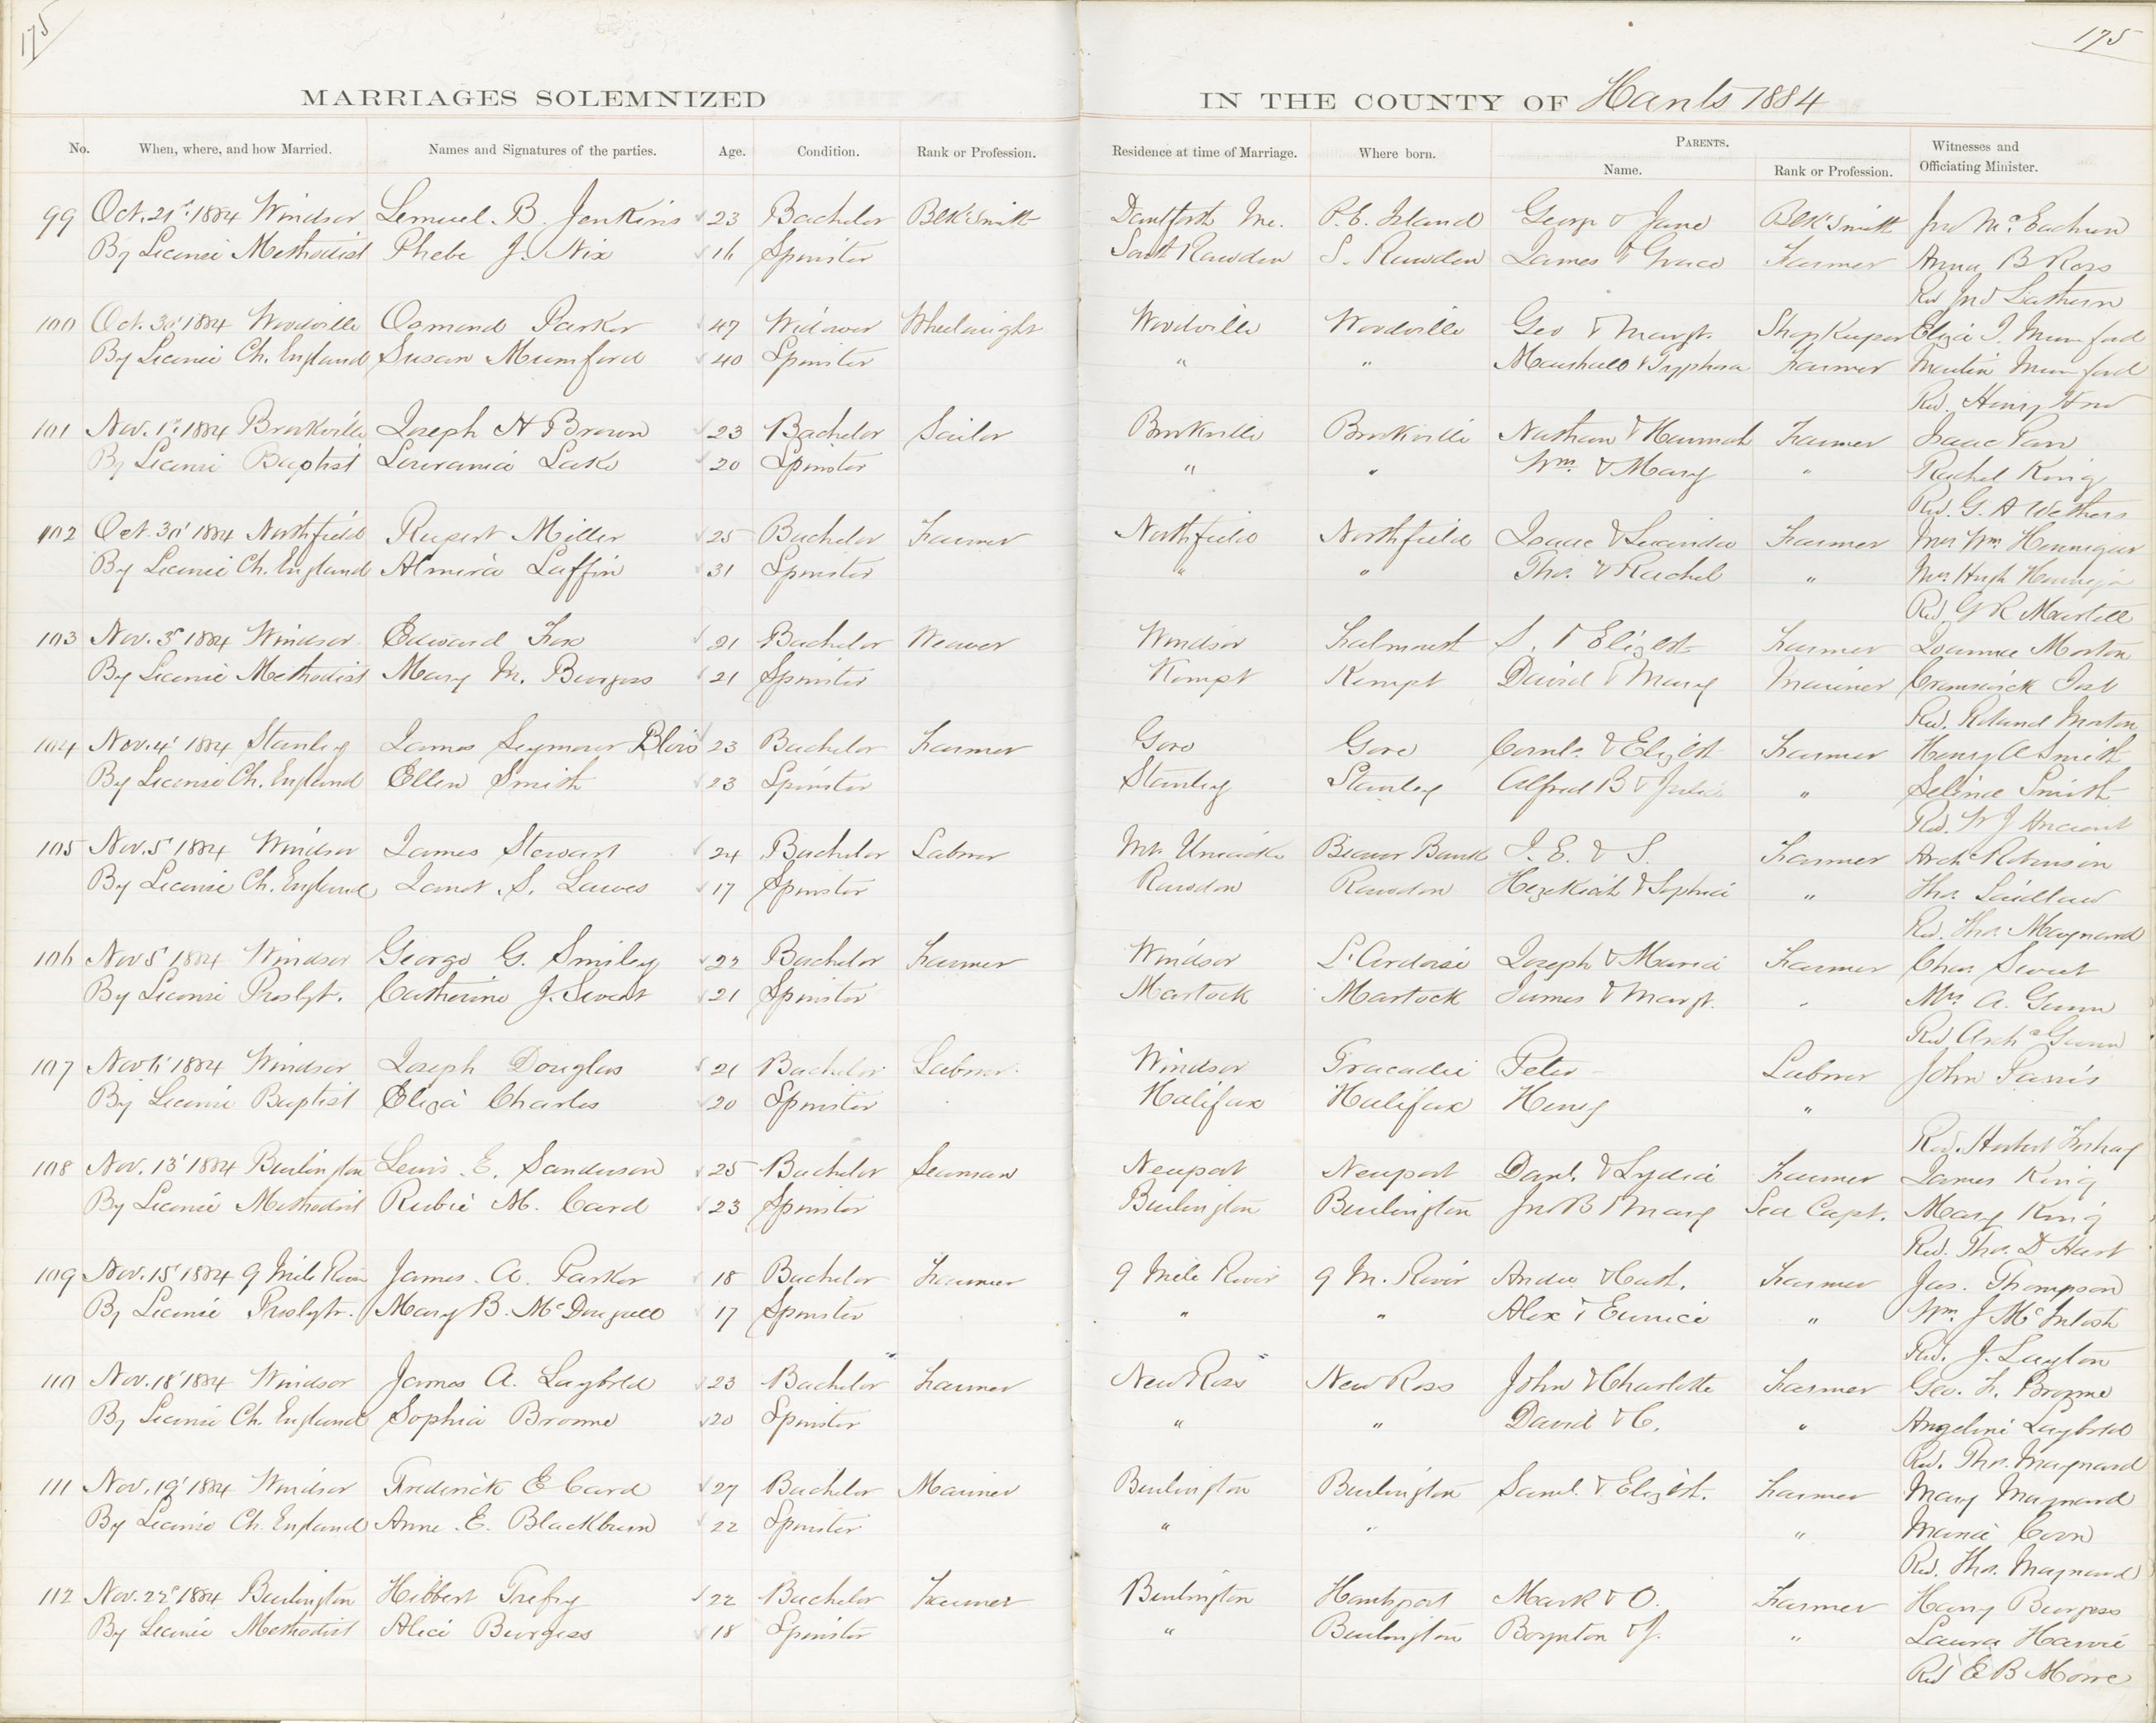 175
175
MARRIAGES SOLEMNIZED IN THE COUNTY OF Hants 1884
No. When, where, and how Married. Names and Signatures of the parties. Age. Condition. Rank or Profession. Residence at time of Marriage. Where born. PARENTS. Name. Rank or Profession. Witnesses and Officiating Minister.
99 Oct. 21st 1884 Windsor Lemuel B. Jenkins 23 Bachelor Blk Smith Danforth Me. P. E. Island George & Jane Blk Smith Jno McEachern
By License Methodist Phebe J. Nix 16 Spinster South Rawdon S. Rawdon James & Grace Farmer Anna B Ross
Rev Jno Lathern
100 Oct. 30' 1884 Woodville Osmond Parker 47 Widower Wheelwright Woodville Woodville Geo & Margt. Shop Keeper Eliza J. Mumford
By License Ch. England Susan Mumford 40 Spinster " " Marshall & Tryphena Farmer Martin Mumford
Rev. Henry How
101 Nov. 1st 1884 Brookville Joseph H Brown 23 Bachelor Sailor Brookville Brookville Nathan & Hannah Farmer Isaac Parr
By License Baptist Lourania Lake 20 Spinster " " Wm. & Mary " Rachel King
Rev. G. A Weathers
102 Oct. 30' 1884 Northfield Rupert Miller 25 Bachelor Farmer Northfield Northfield Isaac & Lucinda Farmer Mrs Wm Hennigar
By License Ch. England Almira Laffin 31 Spinster " " Thos. & Rachel " Mrs Hugh Hennigar
Rev. G R Martell
103 Nov. 3' 1884 Windsor Edward Fox 21 Bachelor Weaver Windsor Falmouth S. & Elizbth Farmer Joanna Morton
By License Methodist Mary M. Burgess 21 Spinster Kempt Kempt David & Mary Mariner Cranswick Jost
Rev. Roland Morton
104 Nov. 4' 1884 Stanley James Seymour Blois 23 Bachelor Farmer Gore Gore Cornls. & Elizbth Farmer Henry A Smith
By License Ch. England Ellen Smith 23 Spinster Stanley Stanley Alfred B & Julia " Selina Smith
Rev. W J Ancient
105 Nov. 5' 1884 Windsor James Stewart 24 Bachelor Labrer Mt. Uniacke Beaver Bank J. E. & S. Farmer Archd Robinson
By License Ch. England Janet S. Lawes 17 Spinster Rawdon Rawdon Hezekiah & Sophia " Thos. Laidlaw
Rev. Thos. Maynard
106 Nov 5' 1884 Windsor George G. Smiley 22 Bachelor Farmer Windsor L'Ardoise Joseph & Maria Farmer Chas. Sweet
By License Presbyt. Catherine J. Sweet 21 Spinster Martock Martock James & Margt. " Mrs A. Gunn
Rev Archd Gunn
107 Nov 6' 1884 Windsor Joseph Douglas 21 Bachelor Labrer. Windsor Tracadie Peter Labrer John Parris
By License Baptist Eliza Charles 20 Spinster Halifax Halifax Henry "
Rev. Herbert Foshay
108 Nov. 13' 1884 Burlington Lewis E. Sanderson 25 Bachelor Seaman Newport Newport Danl. & Lydia Farmer James King
By License Methodist Rubie M. Card 23 Spinster Burlington Burlington Jno B & Mary Sea Capt. Mary King
Rev. Thos. D Hart
109 Nov. 15' 1884 9 Mile River James A. Parker 18 Bachelor Farmer 9 Mile River 9 M. River Andw & Cath. Farmer Jas. Thompson
By License Presbytr. Mary B. McDougall 17 Spinster " " Alex & Eunice " Wm. J McIntosh
Rev. J. Layton
110 Nov. 18' 1884 Windsor James A. Laybold 23 Bachelor Farmer New Ross New Ross John & Charlotte Farmer Geo. F. Broome
By License Ch. England Sophia Broome 20 Spinster " " David & C. " Angeline Laybold
Rev. Thos. Maynard
111 Nov. 19' 1884 Windsor Frederick E Card 27 Bachelor Mariner Burlington Burlington Saml. & Elizbth. Farmer Mary Maynard
By License Ch. England Anne E. Blackburn 22 Spinster " " " Maria Coon
Rev. Thos. Maynard
112 Nov. 22d 1884 Burlington Hibbert Trefry 22 Bachelor Farmer Burlington Hantsport Mark & O. Farmer Harry Burgess
By License Methodist Alice Burgess 18 Spinster " Burlington Boynton & J. " Laura Harvie
Rev E B Moore